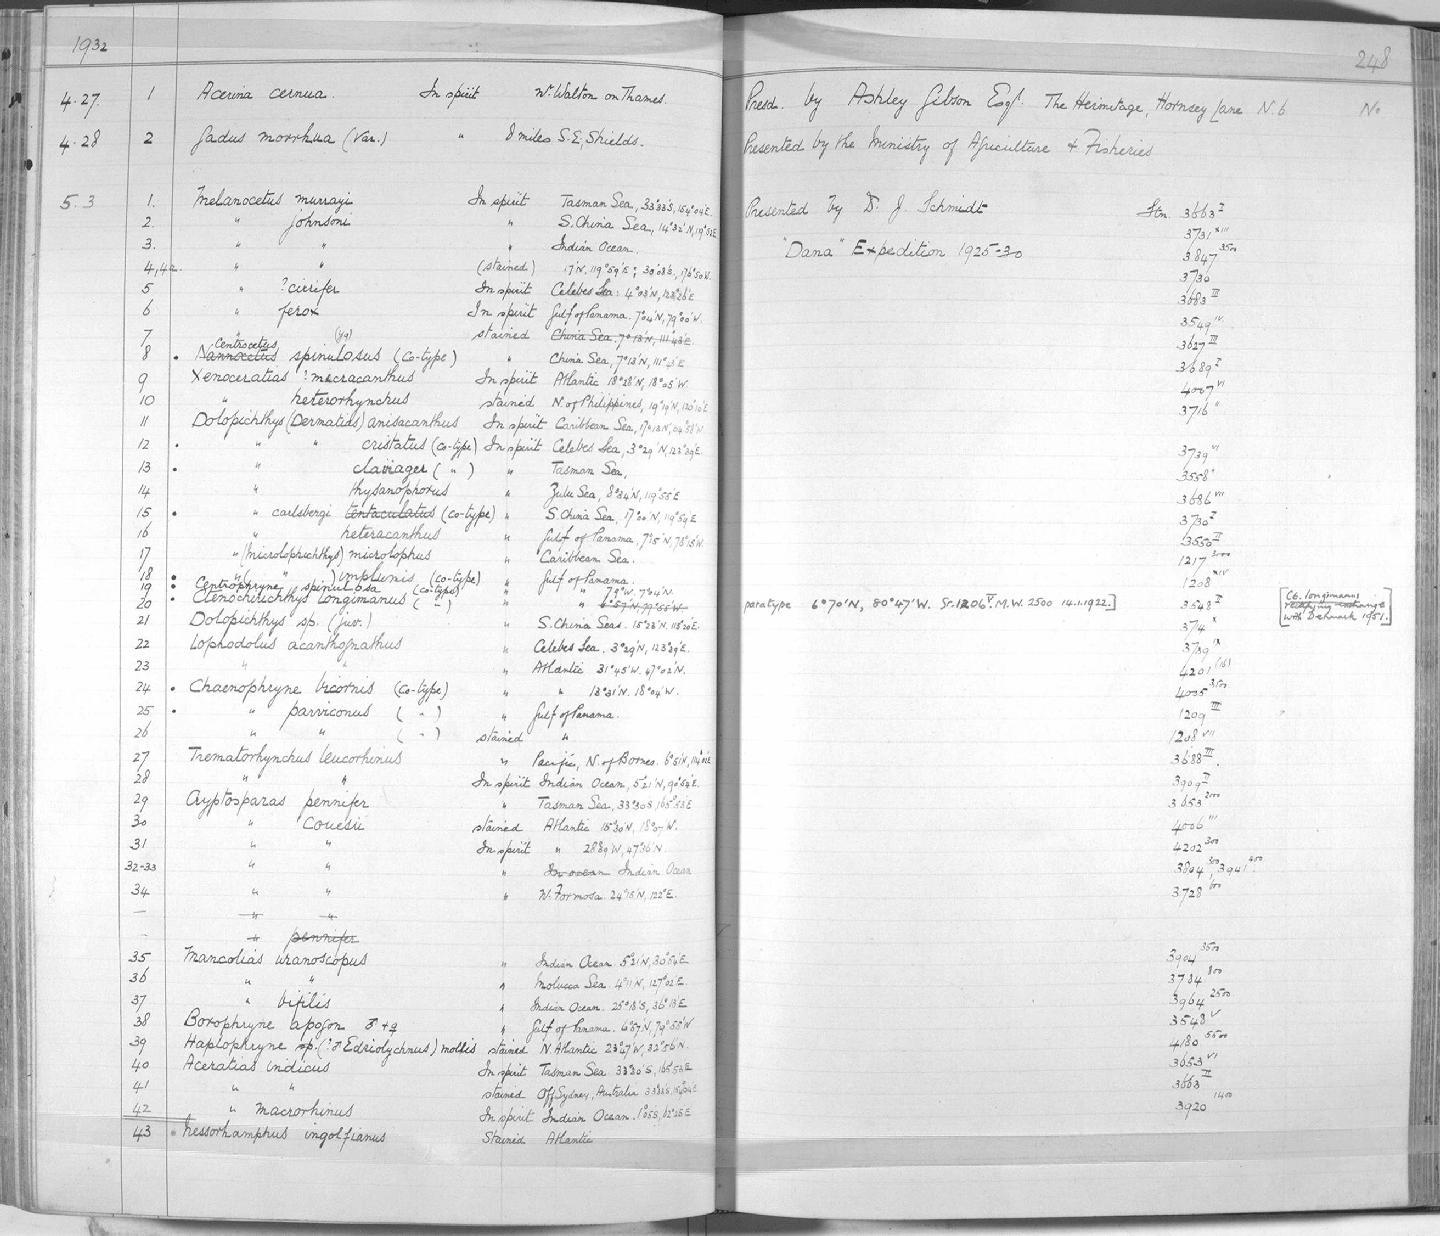 1932
248
4.27. 1 Acerina cernua. In spirit Nr. Walton on Thames. Presd. by Ashley Gibson Esqr. The Hermitage, Hornsey Lane N.6 No
4.28 2 Gadus morrhua (Var.) " 8 miles S.E. Shields. Presented by the Ministry of Agriculture & Fisheries
5.3 1. Melanocetus murrayi In spirit Tasman Sea, 33°33'S, 154°04'E. Presented by Dr. J. Schmidt Stn. 3663 I
2. " Johnsoni " S. China Sea, 14°32'N, 119°52'E 3731 XIII
3. " " " Indian Ocean. "Dana" Expedition 1925-30 3847 3500
4,4a. " " (stained) 3730
5 " ?cirrifer In spirit Celebes Sea: 4°03'N, 123°26'E 3683 III
6 " ferox In spirit Gulf of Panama. 7°04'N, 79°00'W. 3549 IV
7 " stained China Sea, 7°13'N, 111°43'E 3627 III
8 . Centrocetus Nannocetus spinulosus (Co-type) " China Sea, 7°13'N, 111°43'E 3689 I
9 Xenoceratias ?macracanthus In spirit Atlantic 18°28'N, 18°05'W. 4007 VI
10 " heterorhynchus stained N. of Philippines, 19°19'N, 120°10'E 3716 II
11 Dolopichthys (Dermatias) anisacanthus In spirit Caribbean Sea,
12 . " " cristatus (Co-type) In spirit Celebes Sea, 3°29'N, 123°39'E. 3739 VI
13 . " claviager ( " ) " Tasman Sea, 3558
14 " thysanophorus " Zulu Sea, 8°34'N, 119°55'E 3686 VII
15 . " carlsbergi tentaculatus (Co-type) " S. China Sea, 17°00'N, 119°59'E 3730 I
16 " heteracanthus " Gulf of Panama, 7°15'N, 78°15'W. 3550 II
17 " (Microlophichthys) microlophus " Caribbean Sea. 1217 3000
18 . " ( " ) implumis (Co-type) " Gulf of Panama. 1208 XIV
19 . Centrophryne spinulosa (Co-type) " " 7°9'W, 7°04'N.
20 . Ctenochirichthys longimanus ( " ) " " 6°57'N, 79°55'W paratype 6°70'N, 80°47'W. St. 1206 V. M.W. 2500 14.1.1922.] 3548 I
[C6. longimanus
exchange
with Denmark 1951.]
21 Dolopichthys sp. (juv.) " S. China Seas. 15°23'N, 115°20'E. 3714 X
22 Lophodolus acanthognathus " Celebes Sea. 3°29'N, 123°39'E. 3739 IX
23 " " " Atlantic 31°45'W. 47°02'N. 4201 (16)
24 . Chaenophryne bicornis (Co-type) " " 13°31'N. 18°04'W. 4005 3500
25 . " parviconus ( " ) " Gulf of Panama. 1209 III
26 " " ( " ) stained " 1208 VII
27 Trematorhynchus leucorhinus " Pacific, N. of Borneo. 6°51'N, 3688 III
28 " " In spirit Indian Ocean, 5°21'N, 90°54'E. 3909 I
29 Cryptosparas pennifer " Tasman Sea, 33°30'S, 165°53'E 3653 2000
30 " Couesii stained Atlantic 15°30'N, 18°07'W. 4006 III
31 " " In spirit " 28°39'W, 47°36'N. 4202 300
32-33 " " " In ocean Indian Ocean 3804 300, 3941 400
34 " " " W. Formosa. 24°15'N, 122°E. 3728 600
— " "
- " pennifer
35 Mancalias uranoscopus " Indian Ocean 5°21'N, 80°54'E 3904 3500
36 " " " Molucca Sea. 4°11'N, 127°02'E. 3784 800
37 " bifilis " Indian Ocean. 25°18'S, 36°13'E 3964 2500
38 Borophryne apogon ♂ + ♀ " Gulf of Panama. 6°57'N, 79°55'W 3548 V
39 Haplophryne sp. (?♂ Edriolychnus) mollis stained N. Atlantic 23°47'W, 32°56'N. 4180 5500
40 Aceratias indicus In spirit Tasman Sea 33°30'S, 165°53'E 3653 VI
41 " " stained Off Sydney, Australia 33°33'S, 154°04'E 3663 II
42 " macrorhinus In spirit Indian Ocean. 1°05'S, 62°25'E 3920 1400
43 . Nessorhamphus ingolfianus Stained Atlantic